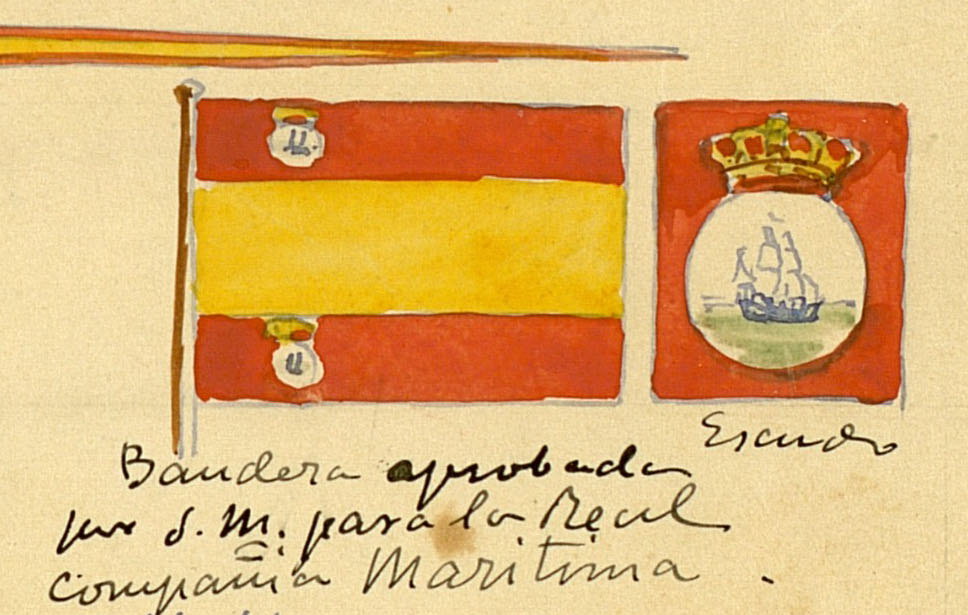 Escudo
Bandera aprobada
por S. M. para la Real
compañia Maritima